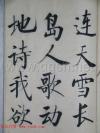 连天雪长
岛人歌动
地诗我欲